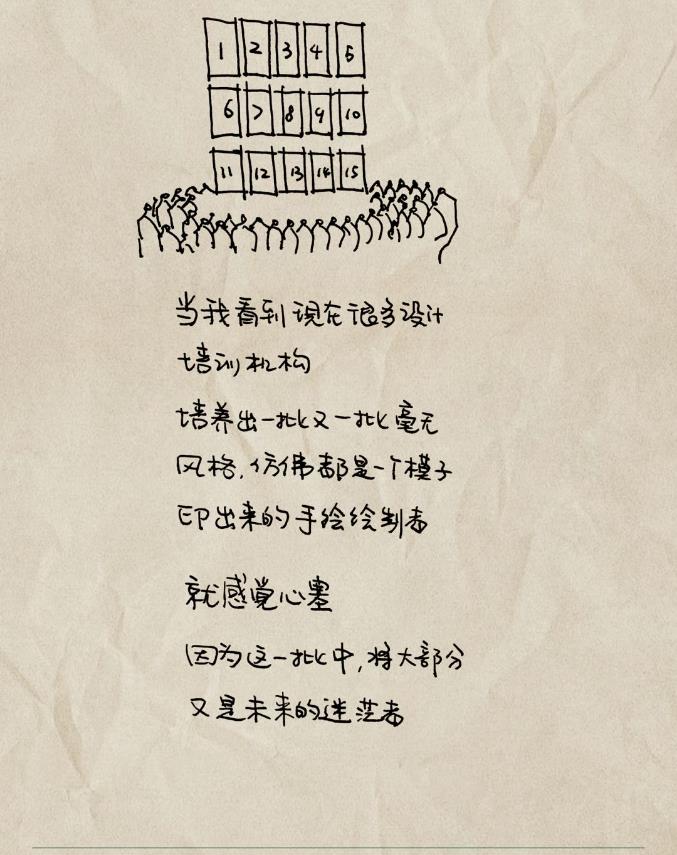 1 2 3 4 5
6 7 8 9 10
11 12 13 14 15
当我看到现在很多设计
培训机构
培养出一批又一批毫无
风格,仿佛都是一个模子
印出来的手绘绘制者
就感觉心塞
因为这一批中,将大部分
又是未来的迷茫者